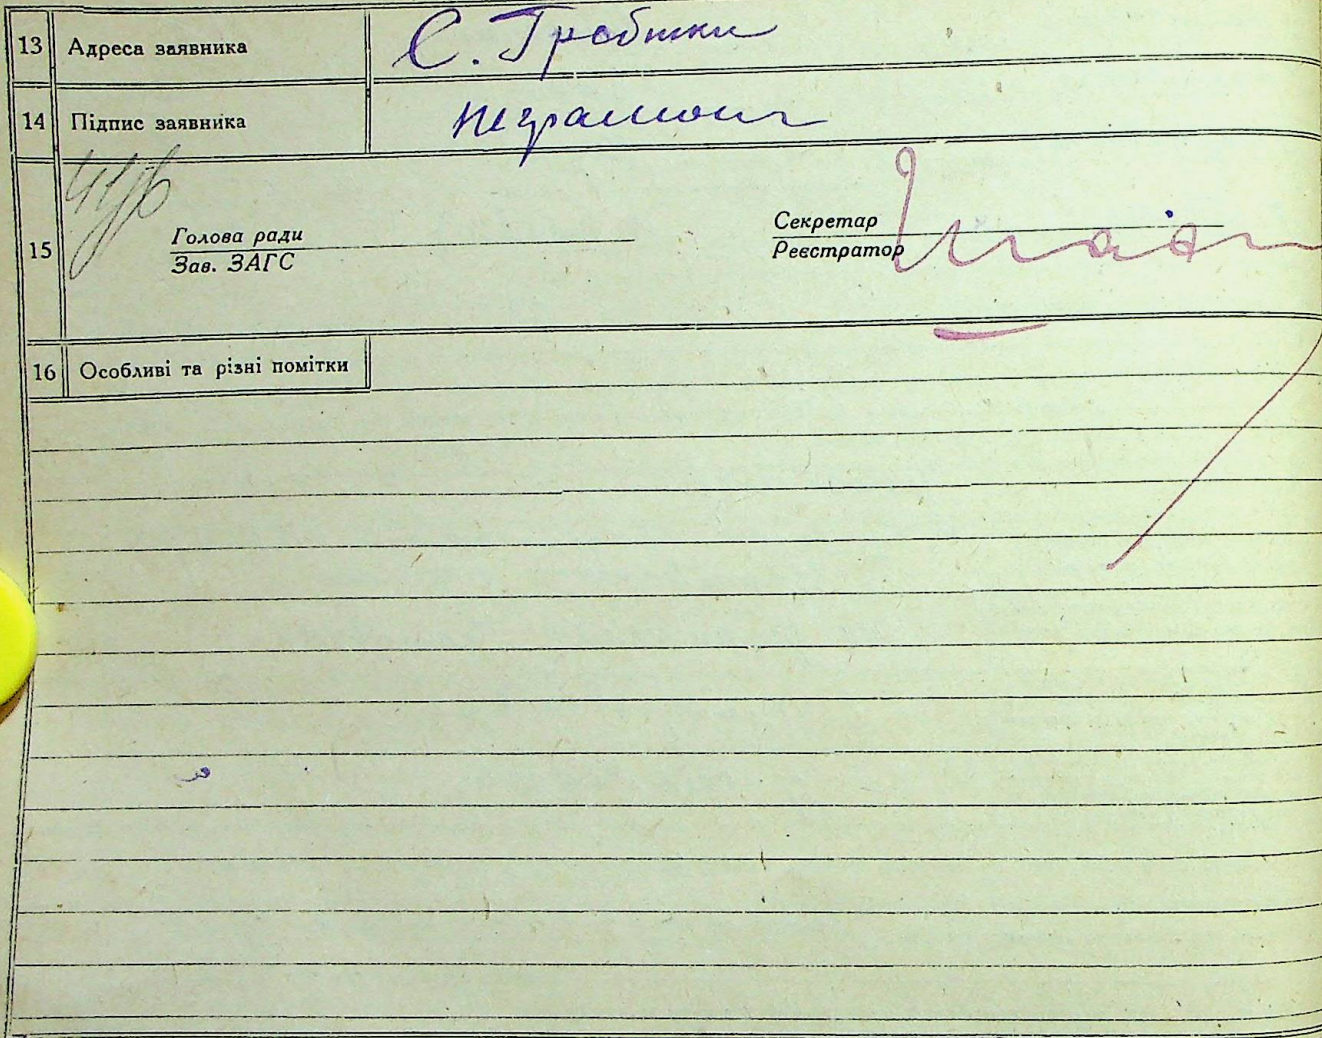 13 Адреса заявника С. Гребтки
14 Підпис заявника неграмотн
15 Голова ради Секретар
Зав. ЗАГС Реєстратор
16 Особливі та різні помітки